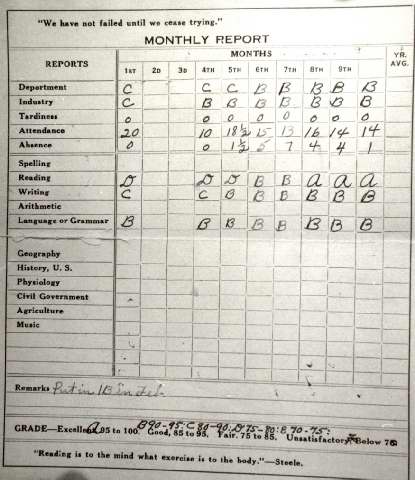 "We have not failed until we cease trying."
MONTHLY REPORT
REPORTS MONTHS YR. AVG.
1ST 2D 3D 4TH 5TH 6TH 7TH 8TH 9TH
Department C C C B B B B B
Industry C B B B B B B B
Tardiness 0 0 0 0 0 0 0 0
Attendance 20 10 18½ 15 13 16 14 14
Absence 0 0 1½ 5 7 4 4 1
Spelling
Reading D D D B B A A A
Writing C C B B B B B B
Arithmetic
Language or Grammar B B B B B B B B
Geography
History, U. S.
Physiology
Civil Government
Agriculture
Music
Remarks Put in 1B in Feb.
A B 90-95: C 80-90: D 75-80: E 70-75:
GRADE—Excellent, 95 to 100. Good, 85 to 95. Fair. 75 to 85. Unsatisfactory, Below 75
"Reading is to the mind what exercise is to the body."—Steele.